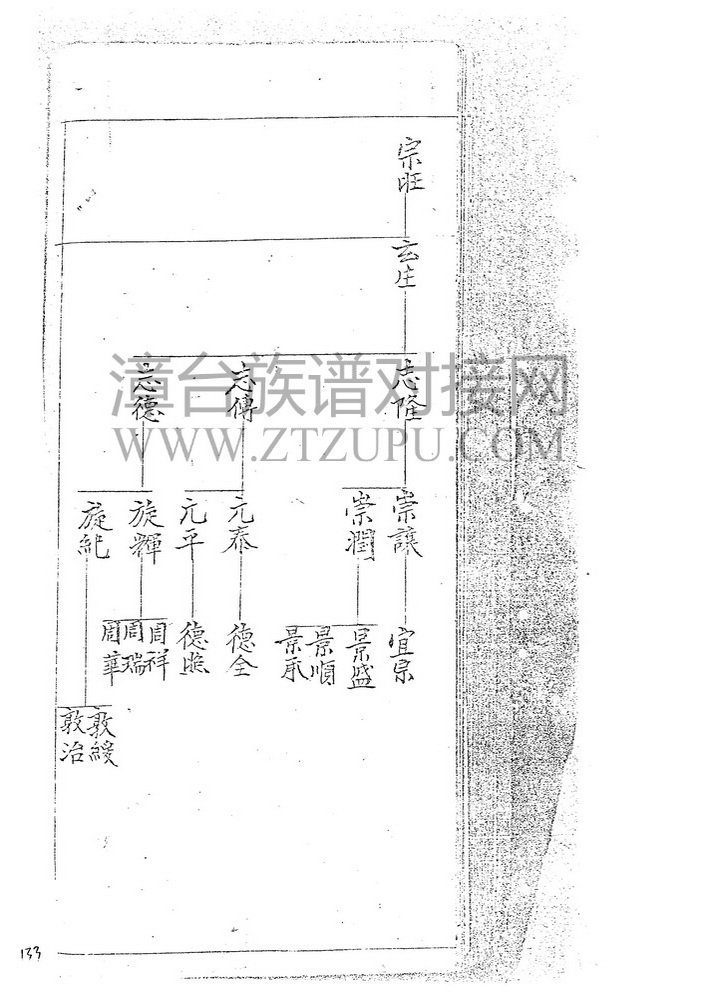 宗旺
玄庄
志隆
志傳
志德
漳台族谱对接网
WWW.ZTZUPU.COM
崇讓
崇潤
元泰
元平
旋輝
旋紀
宜泉
景盛
景順
景承
德全
周祥
周瑞
周華
敦綬
敦治
133